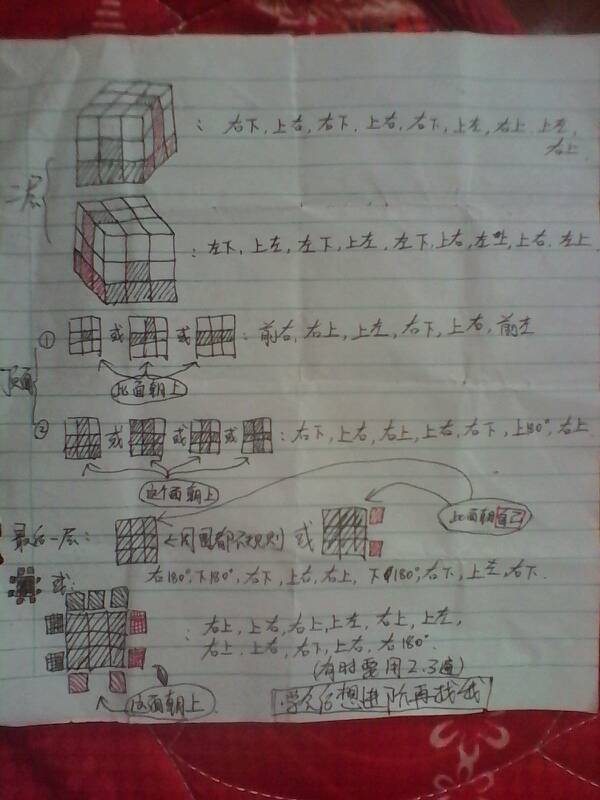 ：右下，上右，右下，上右，右下，上左，右上，上左，
右上
二层
：左下，上左，左下，上左，左下，上右，左上，上右，左上
① 或 或 ：前右，右上，上左，右下，上右，前左
顶面
此面朝上
② 或 或 或 ：右下，上右，右上，上右，右下，上180°，右上
这个面朝上
此面朝自己
最后一层： ←周围都不规则 或
右180°，下180°，右下，上右，右上，下180°，右下，上左，右下．
或：
：右上，上右，右上，上左，右上，上左，
右上，上右，右下，上右，右180°．
(有时要用2.3遍)
这面朝上
学会后想进阶再找我